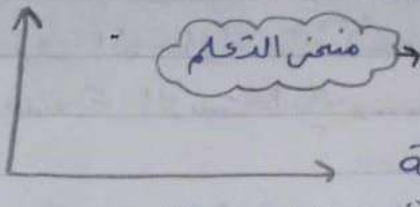 منحنى التعلم